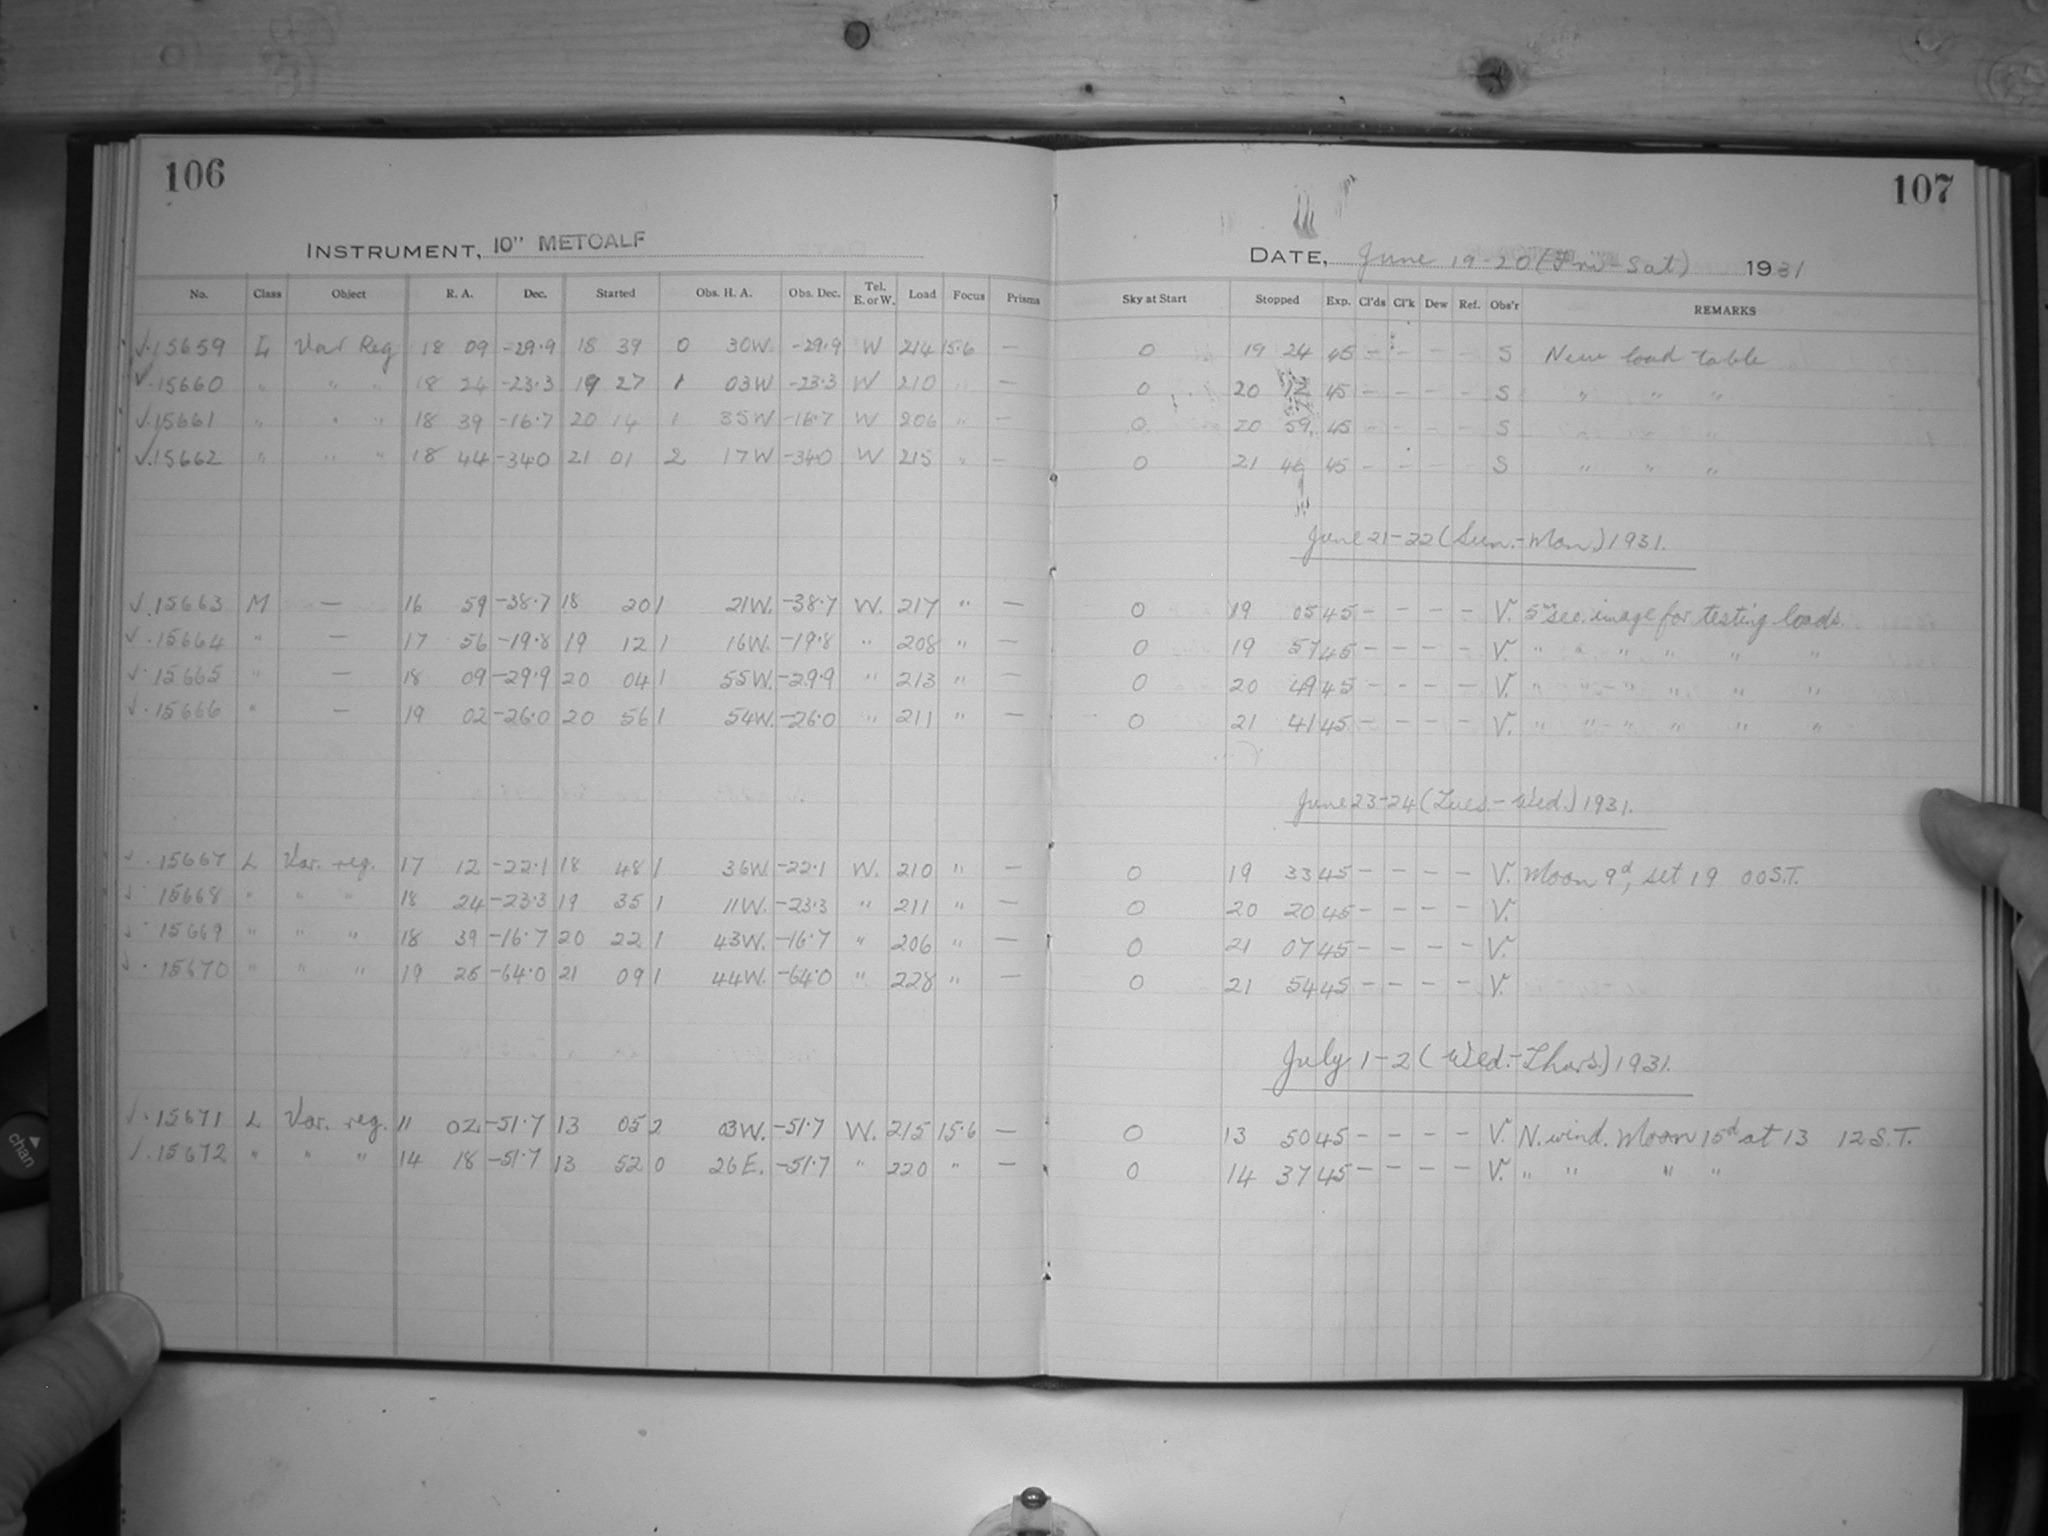 106
INSTRUMENT, 10" METCALF
No. Class Object R. A. Dec. Started Obs. H. A. Obs. Dec. Tel. E. or W. Load Focus Prisms
√.15659 L Var Reg 18 09 -29.9 18 39 0 30W. -29.9 W 214 15.6 —
√.15660 " " " 18 24 -23.3 19 27 1 03W -23.3 W 210 " —
√.15661 " " " 18 39 -16.7 20 14 1 35W -16.7 W 206 " —
√.15662 " " " 18 44 -34.0 21 01 2 17W -34.0 W 215 " —
√.15663 M — 16 59 -38.7 18 20 1 21W. -38.7 W. 217 " —
√.15664 " — 17 56 -19.8 19 12 1 16W. -19.8 " 208 " —
√.15665 " — 18 09 -29.9 20 04 1 55W. -29.9 " 213 " —
√.15666 " — 19 02 -26.0 20 56 1 54W. -26.0 " 211 " —
√.15667 L Var. reg. 17 12 -22.1 18 48 1 36W. -22.1 W. 210 " —
√.15668 " " " 18 24 -23.3 19 35 1 11W. -23.3 " 211 " —
√.15669 " " " 18 39 -16.7 20 22 1 43W. -16.7 " 206 " —
√.15670 " " " 19 25 -64.0 21 09 1 44W. -64.0 " 228 " —
√.15671 L Var. reg. 11 02 -51.7 13 05 2 03W. -51.7 W. 215 15.6 —
√.15672 " " " 14 18 -51.7 13 52 0 26E. -51.7 " 220 " —
107
DATE, June 19-20 (Fri-Sat) 1931
Sky at Start Stopped Exp. Cl'ds Cl'k Dew Ref. Obs'r REMARKS
0 19 24 45 – – – – S New load table
0 20 12 45 – – – – S " " "
0 20 59 45 – – – – S " " "
0 21 46 45 – – – – S " " "
June 21-22 (Sun.-Mon.) 1931.
0 19 05 45 – – – – V. 5 sec. image for testing loads.
0 19 57 45 – – – – V. " " " " " "
0 20 49 45 – – – – V. " " " " " "
0 21 41 45 – – – – V. " " " " " "
June 23-24 (Tues.-Wed.) 1931.
0 19 33 45 – – – – V. Moon 9d, set 19 00 S.T.
0 20 20 45 – – – – V.
0 21 07 45 – – – – V.
0 21 54 45 – – – – V.
July 1-2 (Wed.-Thurs.) 1931.
0 13 50 45 – – – – V. N. wind. Moon 15d at 13 12 S.T.
0 14 37 45 – – – – V. " " " "